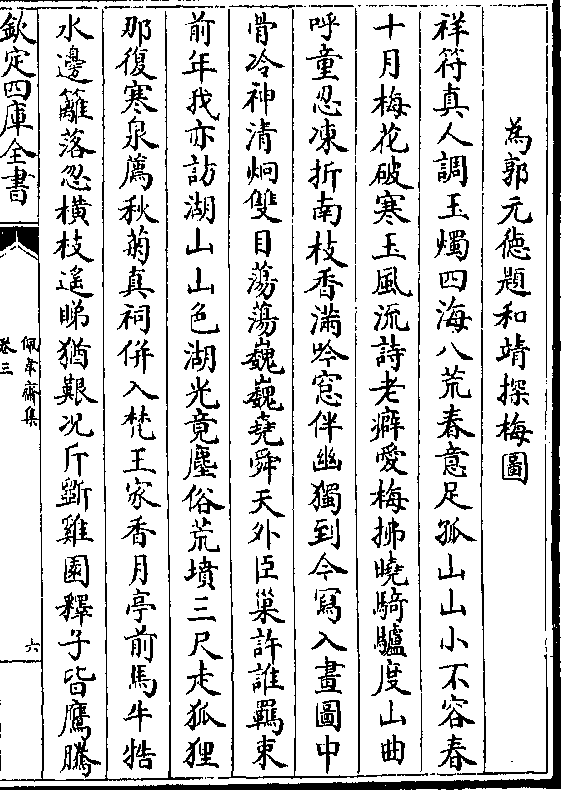 為郭元德題和靖探梅圖
祥符真人調玉燭四海八荒春意足孤山山小不容春
十月梅花破寒玉風流詩老癖愛梅拂曉騎驢度山曲
呼童忍凍折南枝香滿吟窓伴幽獨到今寫入畫圖中
骨冷神清炯雙目蕩蕩巍巍堯舜天外臣巢許誰羈束
前年我亦訪湖山山色湖光竟塵俗荒墳三尺走狐狸
那復寒泉薦秋菊真祠併入梵王家香月亭前馬牛牿
水邊籬落忍橫枝遥睇猶艱况斤斸雞園釋子皆鷹騰
欽定四庫全書
佩韋齋集
卷三
六